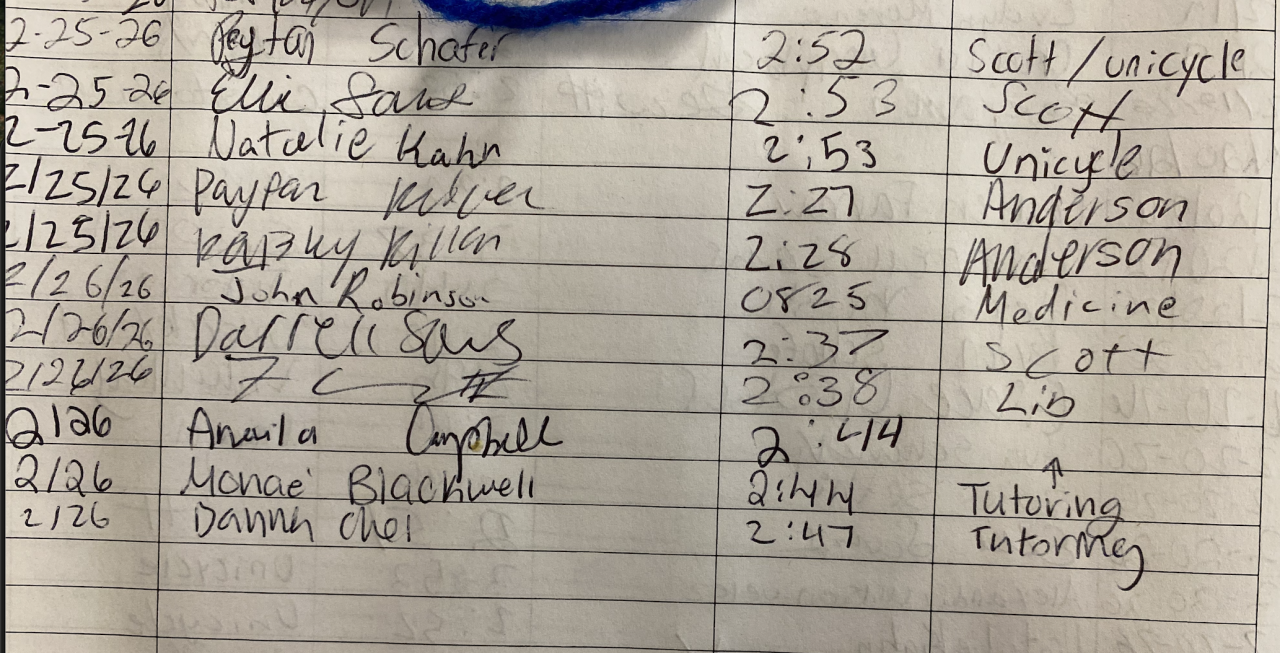 2-25-26 Peyton Schafer 2:52 Scott / unicycle
2-25-26 Elli 2:53 Scott
2-25-26 Natalie Kahn 2:53 Unicycle
2/25/26 2:27 Anderson
2/25/26 Killen 2:28 Anderson
2/26/26 John Robinson 0825 Medicine
2/26/26 Darrell Sans 2:37 Scott
2/26/26 2:38 Lib
2/26 Campbell 2:44
2/26 Monae Blackwell 2:44 ↑ Tutoring
2/26 Danna Choi 2:47 Tutoring